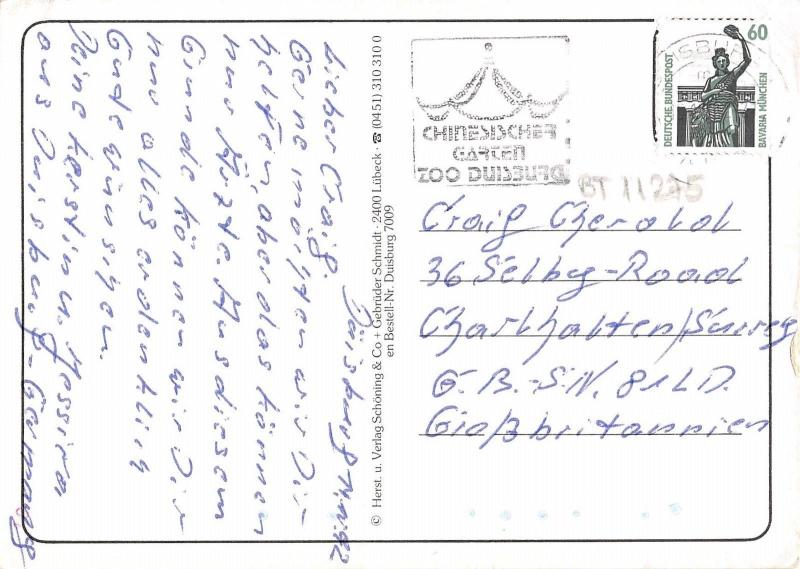 Duisburg 14.11.92
Lieber Craig.
Gerne möchten wir Dir
helfen, aber das können
nur Ärzte. Aus diesem
Grunde können wir Dir
nur alles erdenklich
Gute wünschen.
Deine Kerstin u.
aus Duisburg - Germany
© Herst. u. Verlag Schöning & Co + Gebrüder Schmidt · 2400 Lübeck · ☎ (0451) 310 310 0
en Bestell-Nr. Duisburg 7009
CHINESISCHER
GARTEN
ZOO DUISBURG
60
DEUTSCHE BUNDESPOST
BAVARIA MÜNCHEN
BT 11275
Craig Cherold
36 Selby-Road
Charlhalten/Surrey
G.B.-S.N. 81LD.
Großbritannien